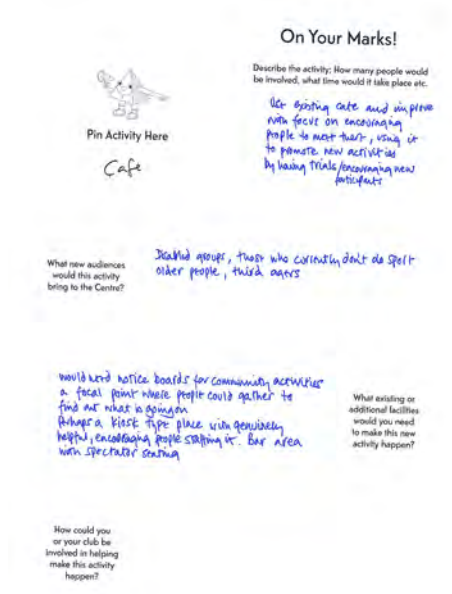 On Your Marks!
Describe the activity: How many people would
be involved, what time would it take place etc.
Pin Activity Here
Café
Use existing cafe and improve
with focus on encouraging
people to meet there, using it
to promote new activities
by having trials/encouraging new
participants
What new audiences
would this activity
bring to the Centre?
Disabled groups, those who currently don't do sport
older people, third agers
would need notice boards for community activities
a focal point where people could gather to
find out what is going on
Perhaps a kiosk type place with genuinely
helpful, encouraging people staffing it. Bar area
with spectator seating
What existing or
additional facilities
would you need
to make this new
activity happen?
How could you
or your club be
involved in helping
make this activity
happen?